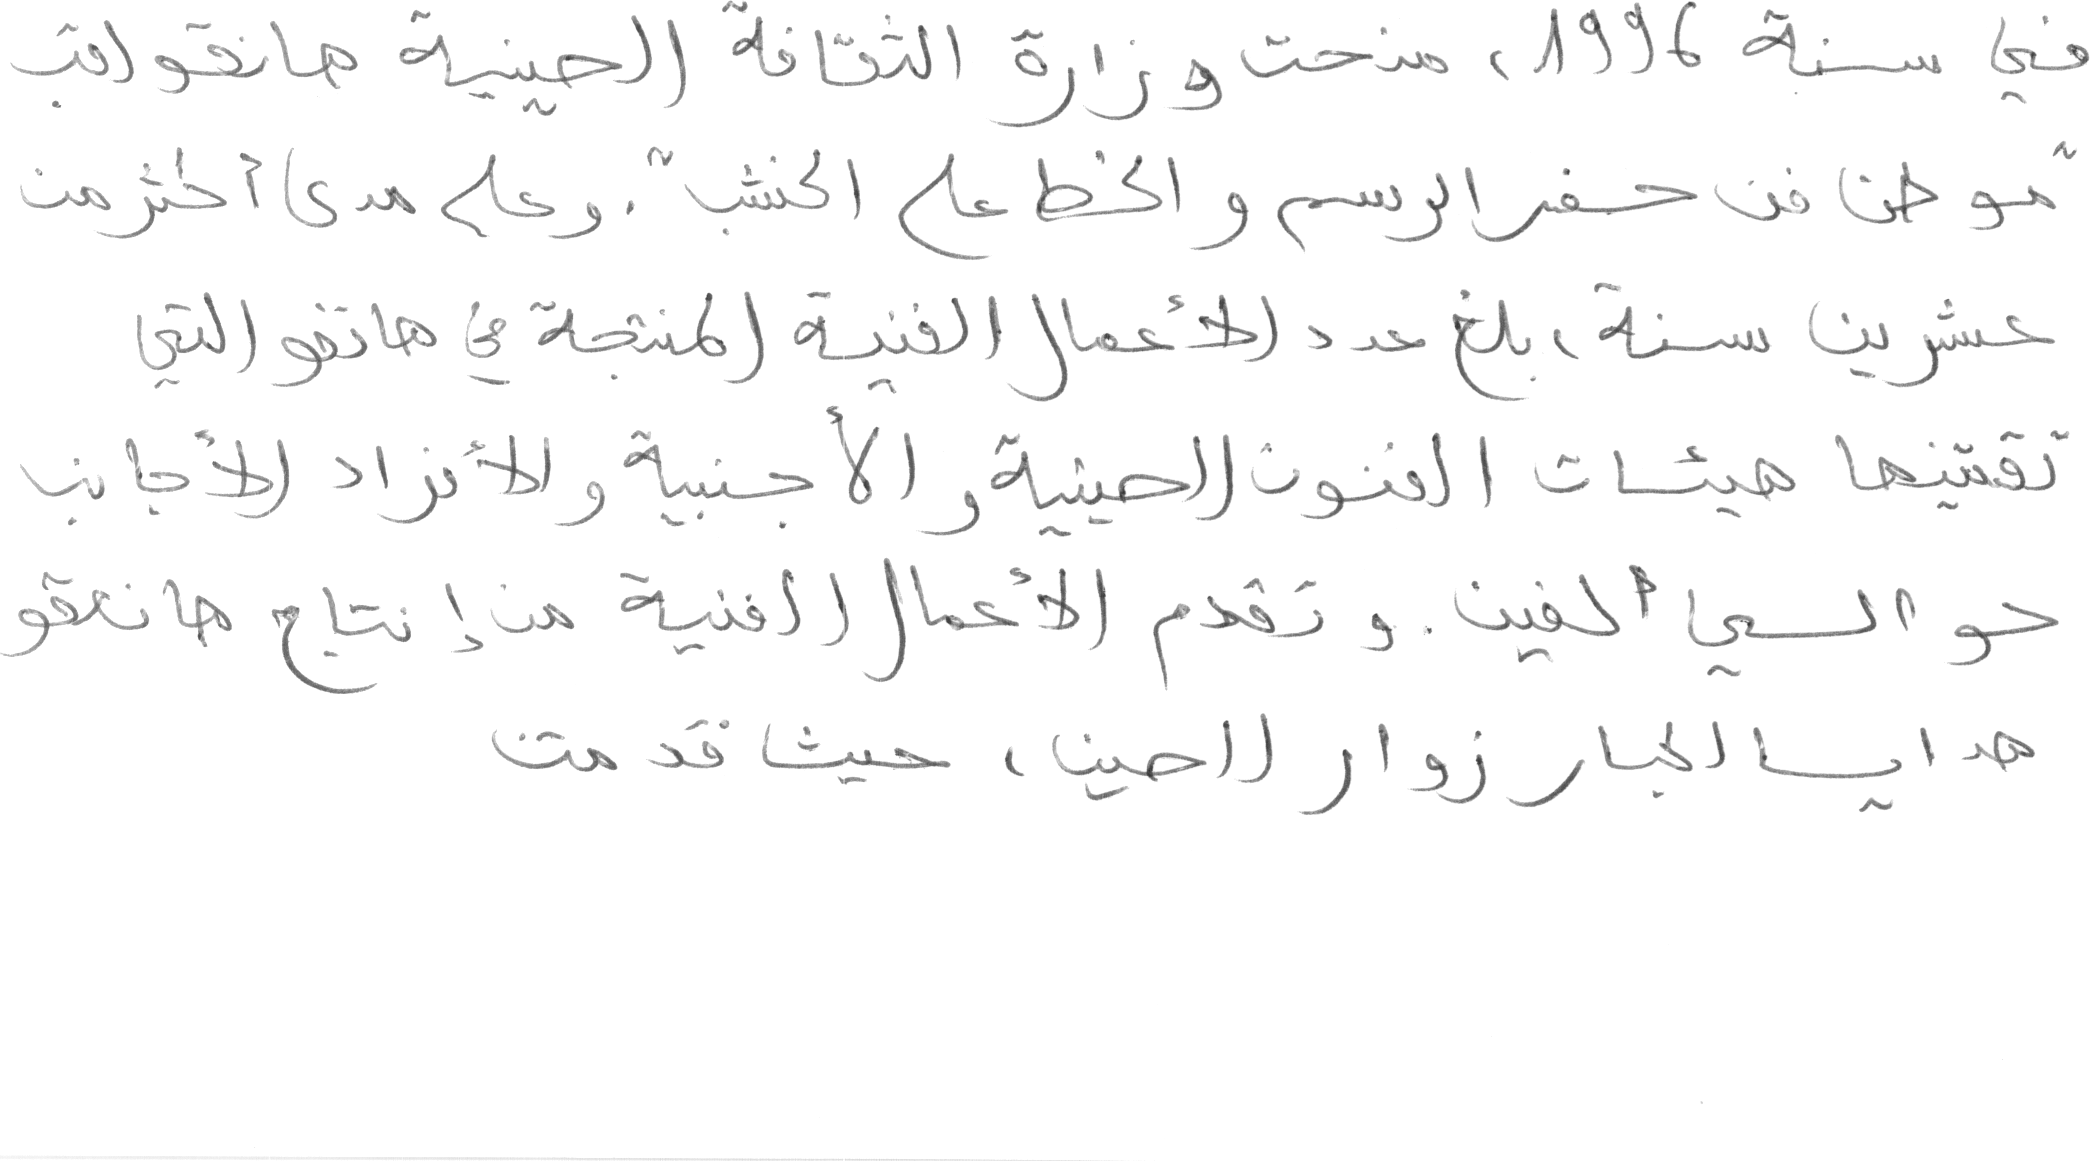 في سنة 1996، منحت وزارة الثقافة الصينية هانقو لقب
"موطن فن حفر الرسم والخط على الخشب". وعلى مدى أكثر من
عشرين سنة، بلغ عدد الأعمال الفنية المنتجة في هانقو التي
تقتنيها هيئات الفنون الصينية والأجنبية والأفراد الأجانب
حوالي ألفين. وتقدم الأعمال الفنية من إنتاج هانقو
هدايا لكبار زوار الصين، حيث قدمت